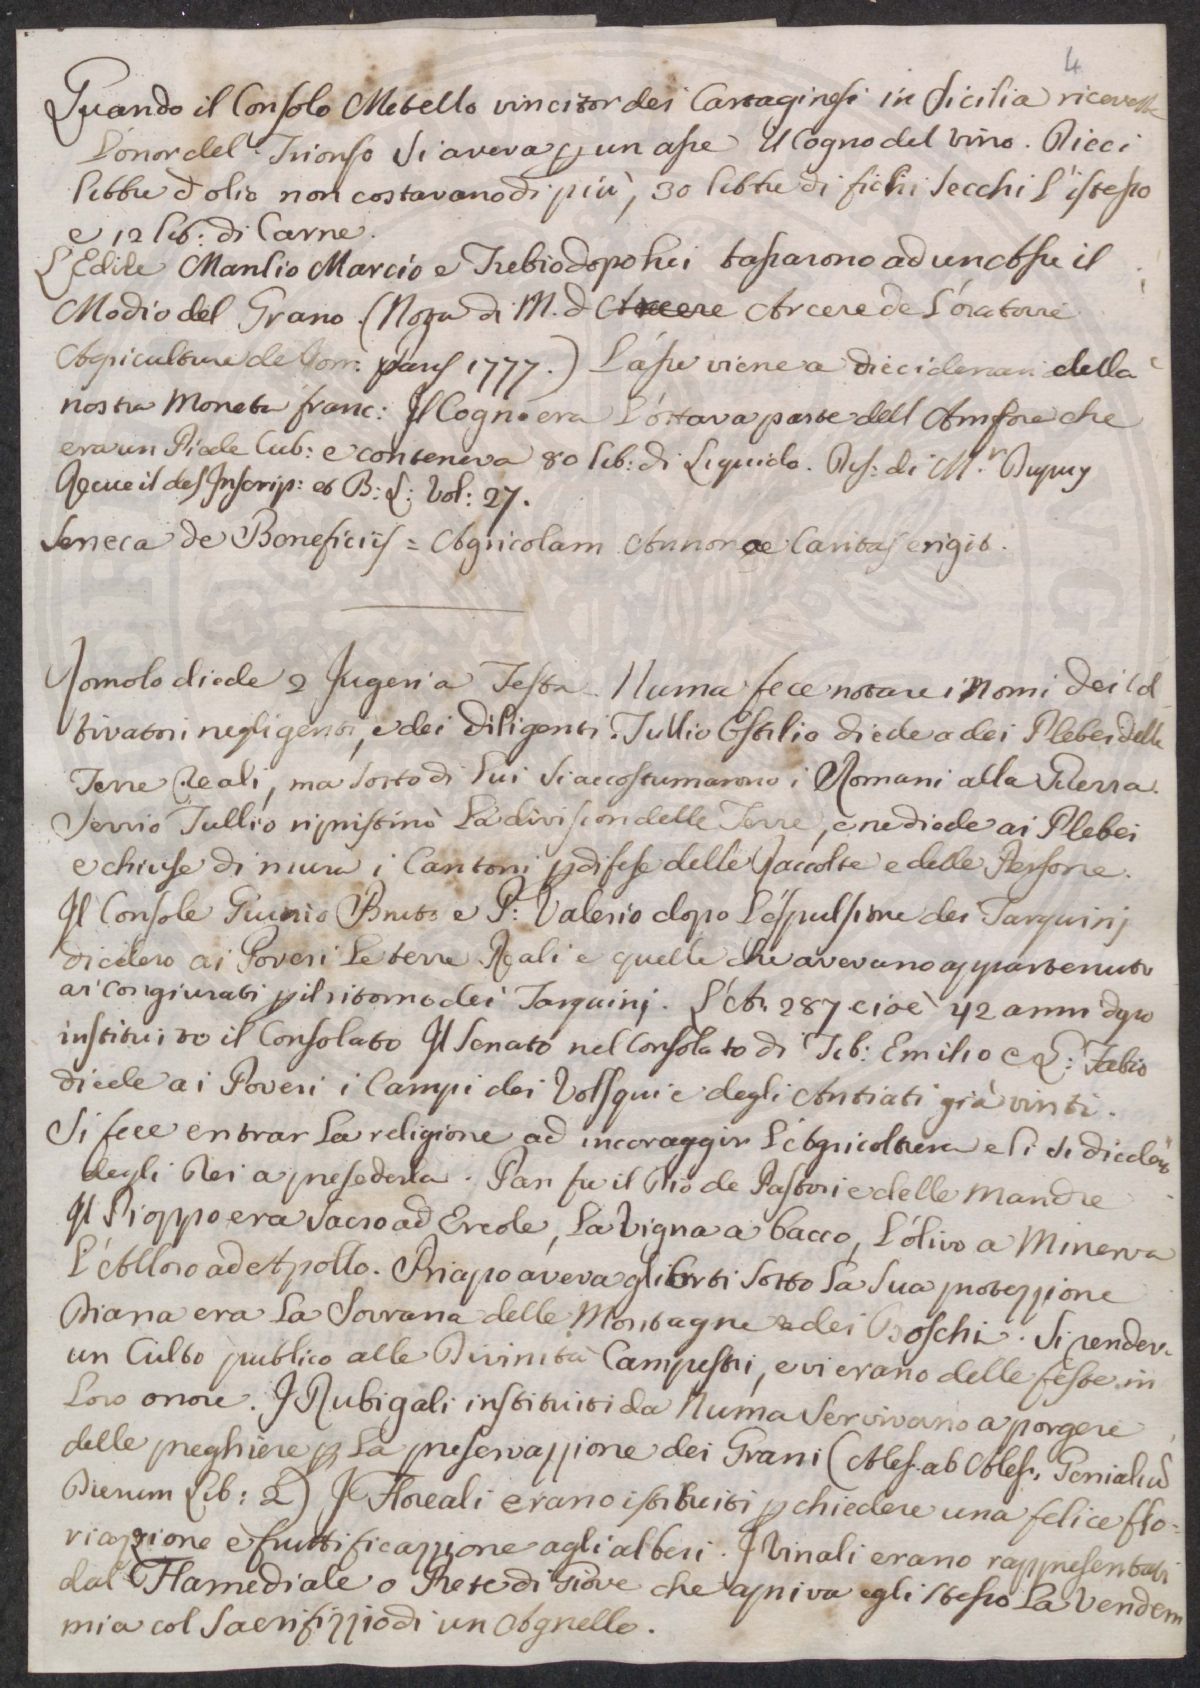 4
Quando il Consolo Metello vincitor dei Cartaginesi in Sicilia ricevette
L'onor del Trionfo si aveva p un asse il Cogno del Vino. Dieci
libbre d'olio non costavano di più, 30 libbre di fichi secchi l'istesso
e 12 lib: di Carne.
L'Edile Manlio Marcio e Trebio dopo lui tassarono ad un Asse il
Modio del Grano. (Nota di M. d' Arcere Arcere de L'oratoire
Agriculture de Rom: Paris 1777.) L'asse viene a dieci denari della
nostra Moneta franc: Il Cogno era l'ottava parte dell' Amfora che
era un Piede Cub: e conteneva 80 lib: di Liquido. Dis: di M.r Dupuy
Recueil des Inscrip: et B: L: Vol: 27.
Seneca de Beneficiis = Agricolam Annonae Caritas erigit.
Romolo diede 2 Jugeri a Testa. Numa fece notare i Nomi dei Col
tivatori negligenti, e dei diligenti. Tullio Ostilio diede a dei Plebei delle
Terre Reali, ma sotto di lui si accostumarono i Romani alla Guerra.
Servio Tullio ripristinò la division delle Terre, e ne diede ai Plebei
e chiuse di mura i Cantoni p difese delle Raccolte e delle Persone.
Il Console Giunio Bruto e P: Valerio dopo l'espulsione dei Tarquinj
diedero ai Poveri le terre Reali e quelle che avevano appartenuto
ai Congiurati p il ritorno dei Tarquinj. L'An. 287 cioè 42 anni dopo
instituito il Consolato Il Senato nel Consolato di Tib: Emilio e Q: Fabio
diede ai Poveri i Campi dei Volsqui e degli Antiati già vinti.
Si fece entrar la religione ad incoraggir l'Agricoltura e li si diedero
degli Dei a presederla. Pan fu il Dio de Pastori e delle Mandre
Il Pioppo era Sacro ad Ercole, La Vigna a bacco, L'olivo a Minerva
L'Alloro ad Apollo. Priapo aveva gli Orti sotto la sua protezzione
Diana era la Sovrana delle Montagne e dei Boschi. Si rendeva
un Culto publico alle Divinità Campestri, e vi erano delle feste in
loro onore. I Rubigali instituiti da Numa Servivano a porgere
delle preghiere p la preservazzione dei Grani (Ales. ab Ales. Genialium
Dierum Lib: 2) I Floreali erano istituiti p chiedere una felice flo=
riazzione e fruttificazzione agli alberi. I Vinali erano rappresentati
dal Flamediale o Prete di Giove che apriva egli stesso la Vendem
mia col Sacrifizzio di un Agnello.